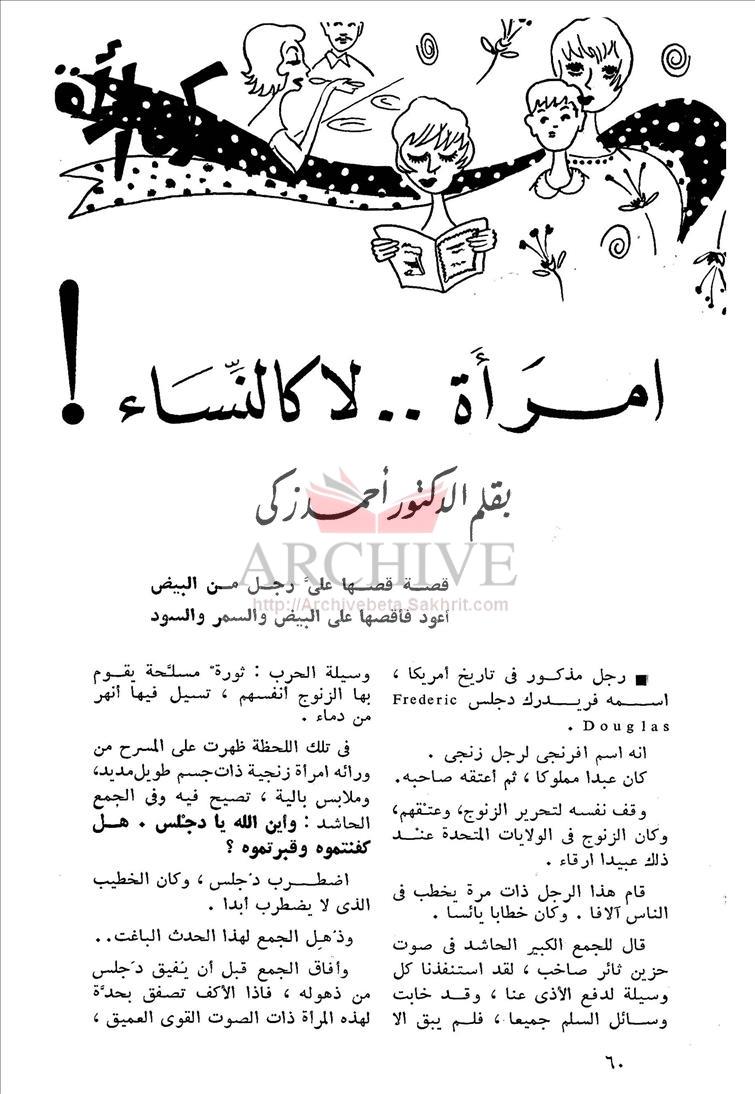 كل امرأة
امرَأَة .. لا كالنِّسَاء !
بقلم الدكتور أحمد زكى
ARCHIVE
http://Archivebeta.Sakhrit.com
قصة قصها علىَّ رجل من البيض
أعود فأقصها على البيض والسمر والسود
■ رجل مذكور فى تاريخ أمريكا ،
اسمه فريدرك دجلس Frederic
Douglas .
انه اسم افرنجى لرجل زنجى .
كان عبدا مملوكا ، ثم أعتقه صاحبه.
وقف نفسه لتحرير الزنوج، وعتْقهم،
وكان الزنوج فى الولايات المتحدة عند
ذلك عبيدا ارقاء .
قام هذا الرجل ذات مرة يخطب فى
الناس آلافا . وكان خطابا يائسا .
قال للجمع الكبير الحاشد فى صوت
حزين ثائر صاخب ، لقد استنفذنا كل
وسيلة لدفع الأذى عنا ، وقد خابت
وسائل السلم جميعا ، فلم يبق الا
وسيلة الحرب : ثورة مسلّحة يقوم
بها الزنوج أنفسهم ، تسيل فيها أنهر
من دماء .
فى تلك اللحظة ظهرت على المسرح من
ورائه امرأة زنجية ذات جسم طويل مديد،
وملابس بالية ، تصيح فيه وفى الجمع
الحاشد : وأين الله يا دجْلس . هل
كفنتموه وقبرتموه ؟
اضطرب دُجلس ، وكان الخطيب
الذى لا يضطرب أبدا .
وذُهل الجمع لهذا الحدث الباغت..
وأفاق الجمع قبل أن يُفيق دُجلس
من ذهوله ، فاذا الأكف تصفق بحدَّة
لهذه المرأة ذات الصوت القوى العميق ،
٦٠